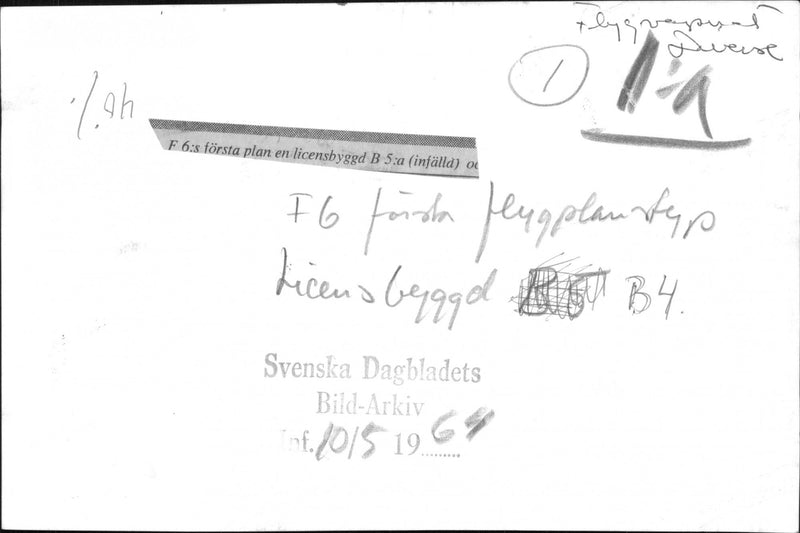 Flygvapnet
Diverse
1
1:a
48%
F 6:s första plan en licensbyggd B 5:a (infälld) oc
F6 första flygplanstyp
Licensbyggd B5 B4.
Svenska Dagbladets
Bild-Arkiv
Inf. 10/5 1964